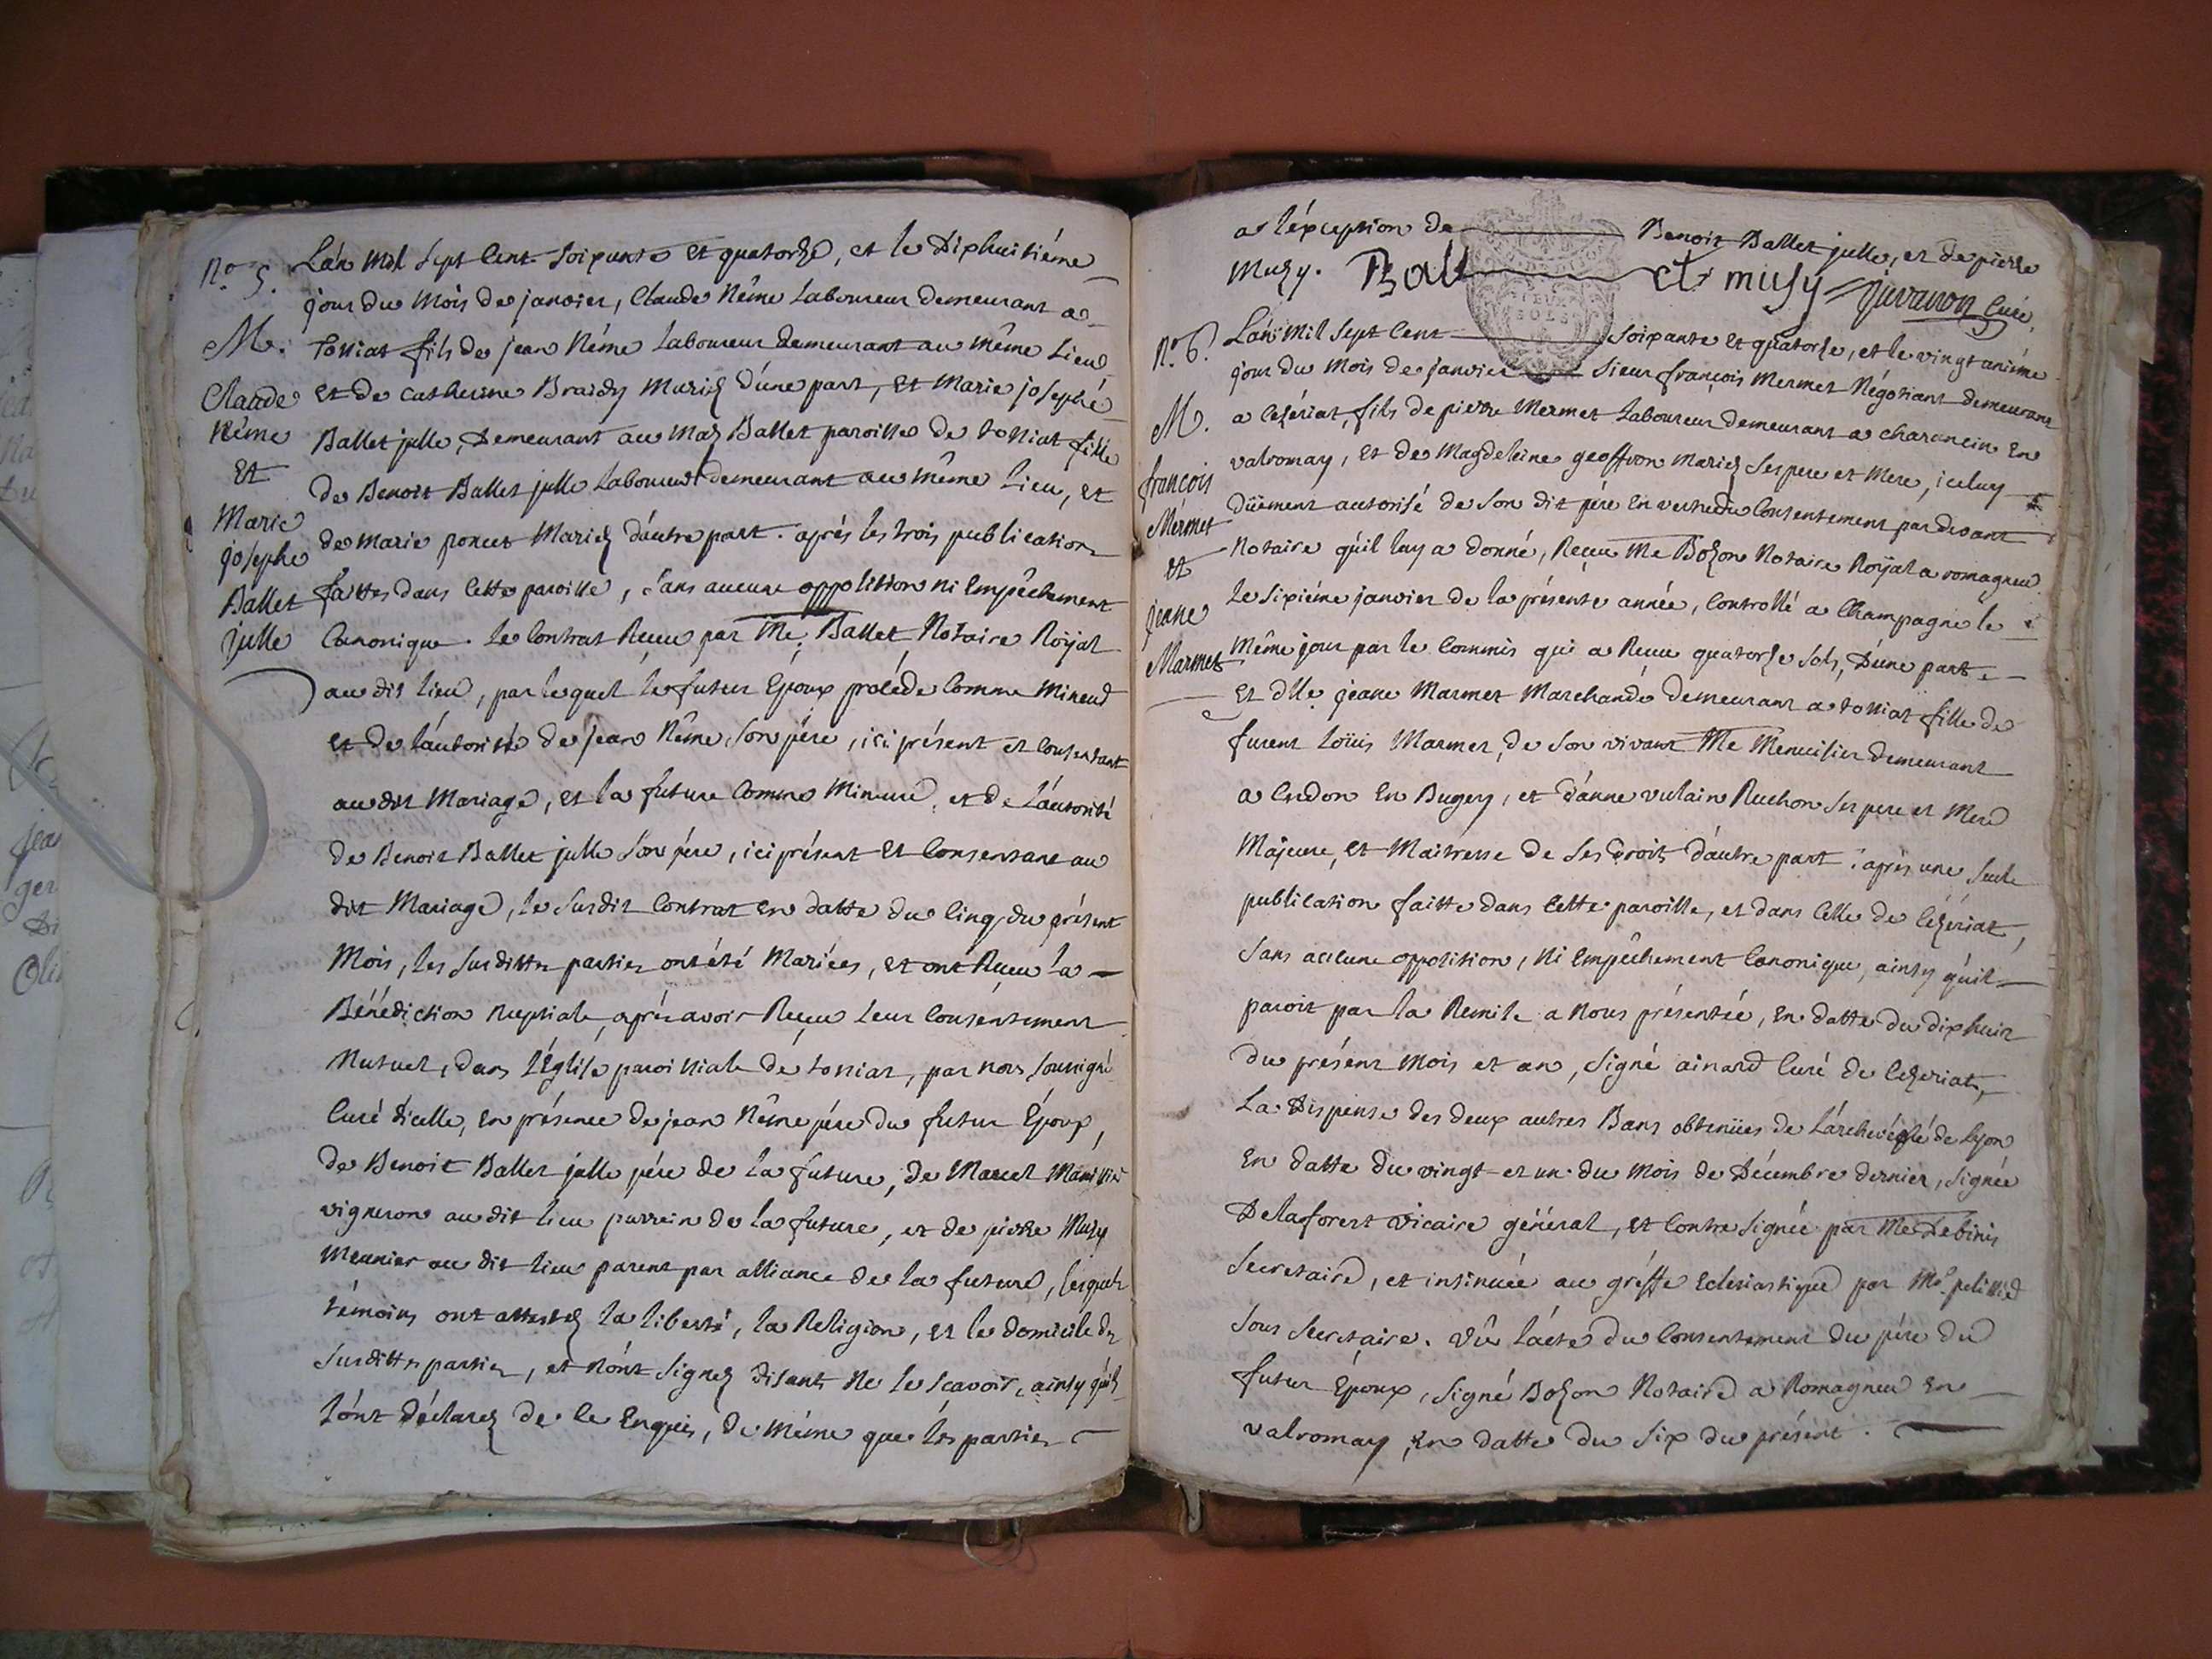 N.º 5. L'án Mil Sept Cent Soixante et quatorze, et le Dixhuitiéme
jour du Mois de janvier, Claude Néme Laboureur demeurant a
M. tossiat fils de jean Néme Laboureur demeurant au même Lieu
Claude et de catherine Braidy Mariez d'úne part, et Marie josephe
Néme Ballet julle, Demeurant au Maz Ballet paroisse de tossiat fille
Et de Benoit Ballet julle Laboureur demeurant au même Lieu, et
Marie de marie poncet Mariez d'áutre part. aprés les trois publications
josephe
Ballet faittes dans Cette paroisse, sans aucune opposition ni Empêchement
julle Canonique. Le Contrat Reçu par Me. Ballet Notaire Roÿal
au dit Lieu, par lequel le futur Epoux procéde Comme Mineur
et de l'áutorité de jean Néme Son pére, ici présent et Consentant
au dit Mariage, et la future Comme Mineure, et de L'áutorité
de Benoit Ballet julle Son pére, ici présent et Consentant au
dit Mariage, le Susdit Contrat en datte du Cinq du présent
Mois, les Susdittes parties ont été Mariées, et ont Reçu la
Bénédiction Nuptiale, aprés avoir Reçu Leur Consentement
Mutuel, dans L'Église paroissiale de tossiat, par nous soussigné
Curé d'icelle, en présence de jean Néme pére du futur Epoux,
de Benoit Ballet julle pére de la future, de Marcel
vigneron au dit Lieu parrein de la future, et de pierre Muzy
Meunier au dit Lieu parent par alliance de la future, lesquels
témoins ont attestez la liberté, la Religion, et le domicile des
Susdittes parties, et n'ónt Signez disant Ne le Scavoir, ainsy qu'ils
l'ónt déclarez de ce Enquis, de Même que les parties
a l'éxception de Benoit Ballet julle, et de pierre
Muzy. Ballet musy juvanon Curé
N.º 6. L'án Mil Sept Cent Soixante et quatorze, et le vingt aniéme
jour du Mois de janvier Sieur françois Mermet Négotiant demeurant
M. a Cezériat, fils de pierre Mermet Laboureur demeurant a charancin en
françois valromay, et de Magdeleine geoffron Mariez Ses pere et Mere, iceluy
Mérmet Düement autorisé de Son dit pére en vertu du Consentement par devant
et Notaire qu'il luy a donné, Reçu Me Bozon Notaire Roÿal a romagnieu
jeane le Sixiéme janvier de la présente année, Controllé a Champagne le
Marmet Même jour par le Commis qui a Reçu quatorze Sols, d'úne part
Et dlle. jeane Marmet Marchande demeurant a tossiat fille de
furent Loüis Marmet, de Son vivant Me Menuisier demeurant
a Cerdon en Bugey, et d'ánne vulain Ruchon Ses pere et Mere
Majeure, et Maitresse de Ses droits d'áutre part: aprés une Seule
publication faitte dans Cette paroisse, et dans Celle de Cézériat,
Sans aucune opposition, Ni Empêchement Canonique, ainsy qu'il
paroit par la Remise a Nous présentée, en datte du dixhuit
du présent Mois et an, Signé ainard Curé de Cezeriat,
La Dispense des deux autres Bans obtenües de L'árchevêché de Lyon
En datte du vingt et un du Mois de Décembre dernier, Signée
Delaforest vicaire général, et Contre Signée par Me Debinis
Secretaire, et insinuée au gréffe Eclesiastique par Me.
Sous Secretaire. Vû l'ácte du Consentement du pére du
futur Epoux, Signé Bozon Notaire a Romagnieu en
valromay, en datte du Six du présent.